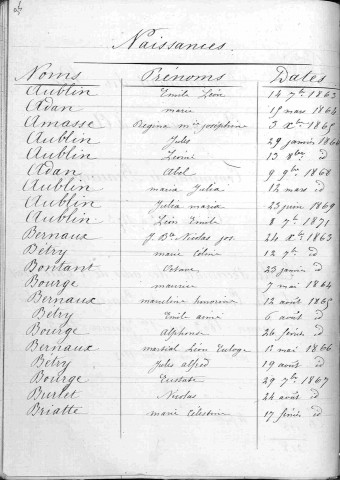 Naissances.
Noms Prénoms Dates
Aublin Emile Léon 14 7bre 1863
Adan marie 15 mars 1864
Amasse Regina mie joséphine 3 Xbre 1865
Aublin Jules 29 janvier 1866
Aublin Léonie 13 8bre id
Adan Abel 9 9bre 1868
Aublin maria Julia 12 mars id
Aublin Julia maria 23 juin 1869
Aublin Léon Emile 8 7bre 1871
Bernaux J. Bte Nicolas jos. 24 Xbre 1863
Bétry marie Céline 12 7bre id
Bontant Octave 23 janvier id
Bourge maurice 7 mai 1864
Bernaux honorine 12 août 1865
Bétry Emile aimé 6 avril id
Bourge Alphonse 26 février id
Bernaux martial Léon Euloge 11 mai 1866
Bétry Jules alfred 19 avril id
Bourge Eustate 29 7bre 1867
Burlet Nicolas 24 août id
Briatte marie Célestine 17 février id